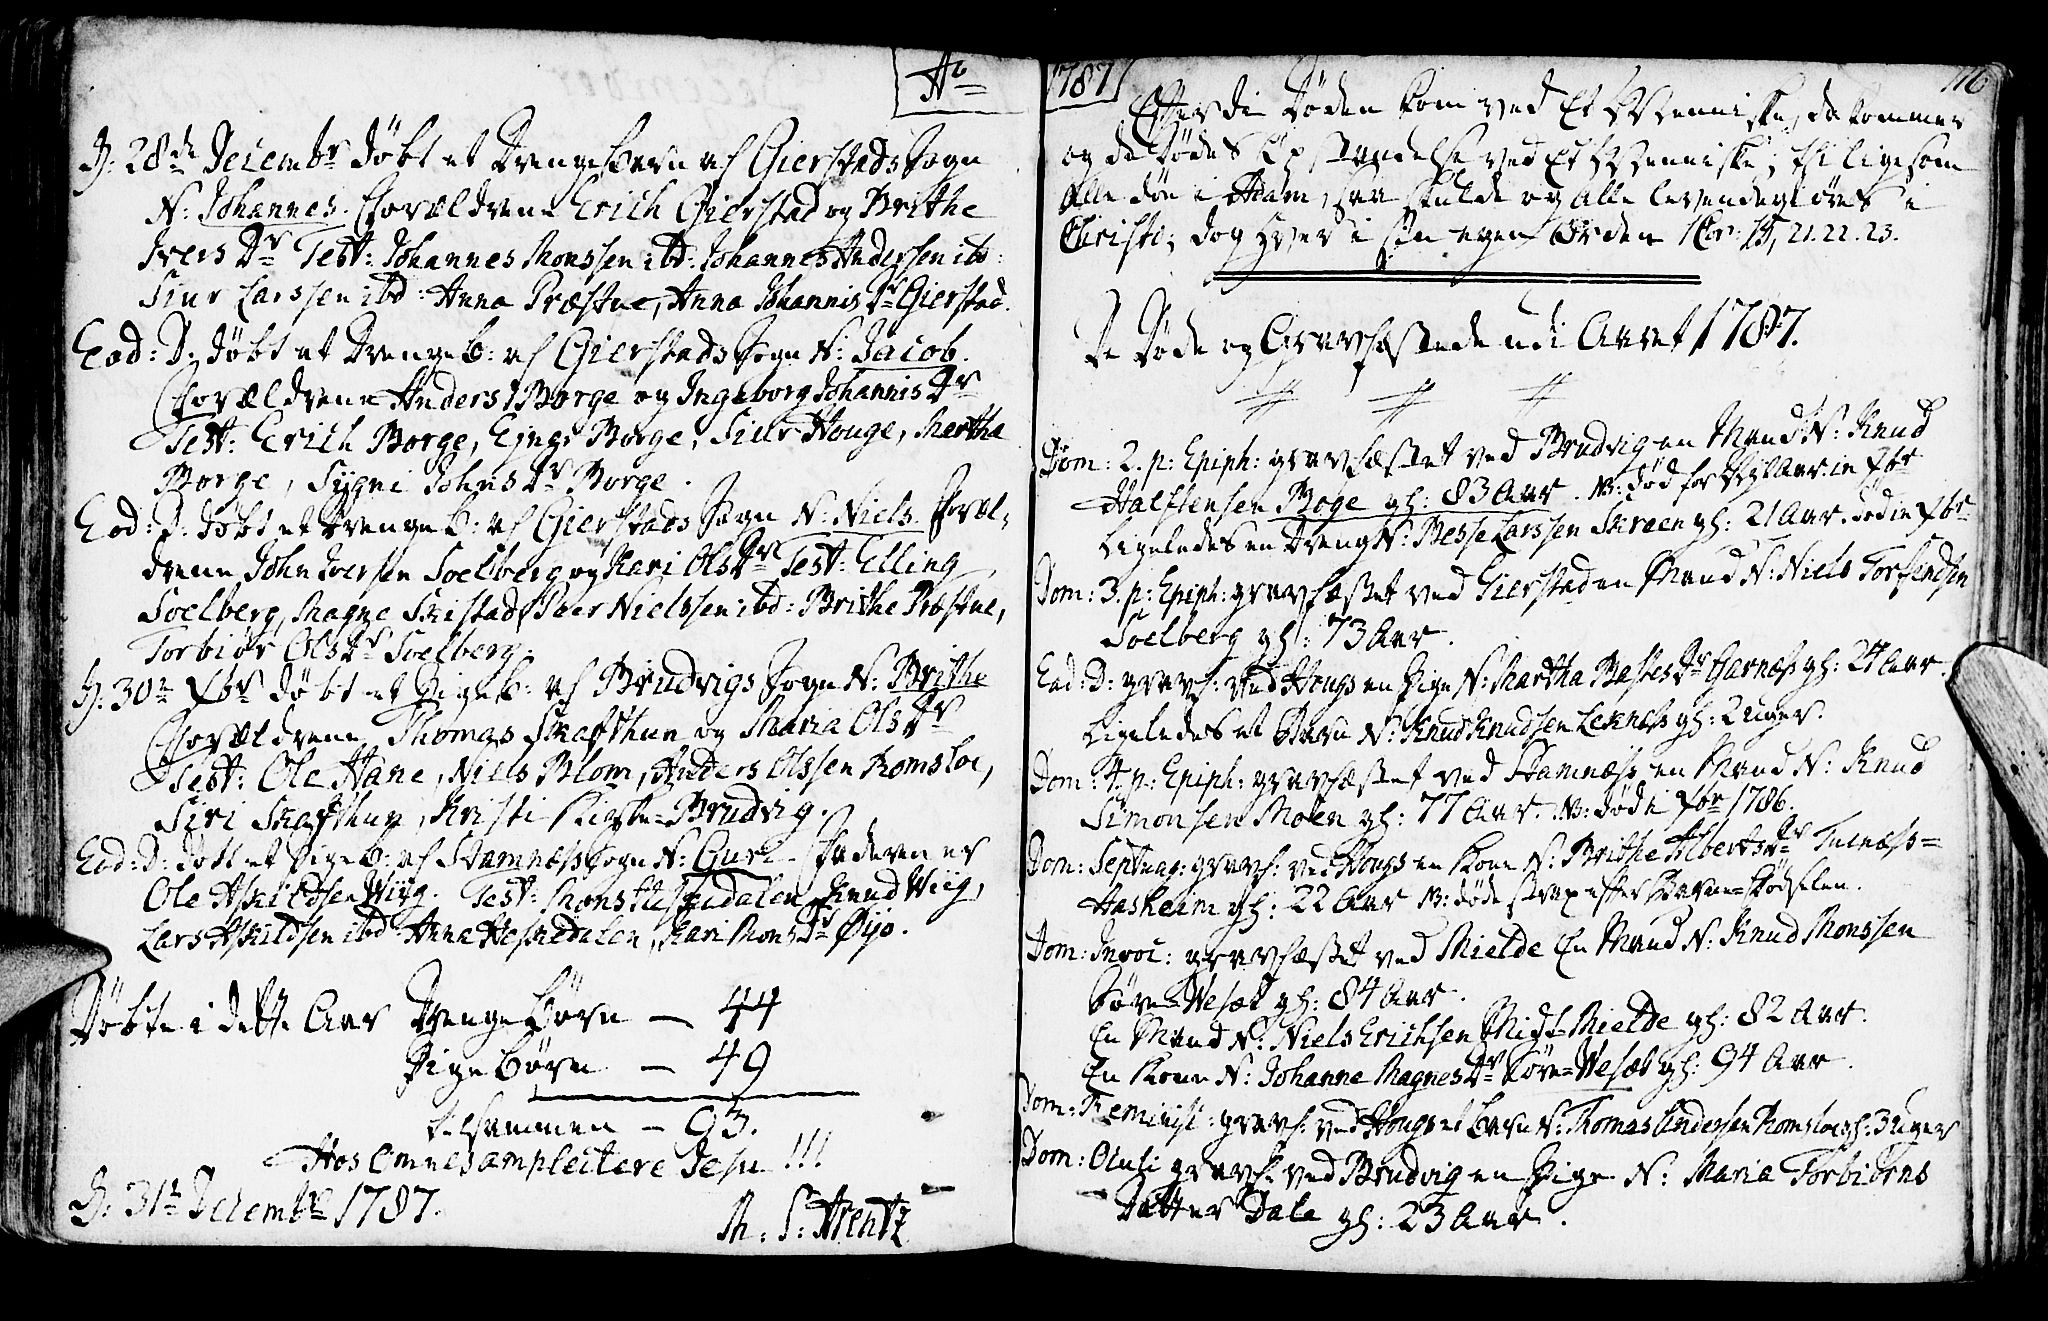 Ao
D. 28de Decembr døbt et Drengebarn af Gierstads Sogn
N: Johannes. Forældrene Erich Gierstad og Brithe
Ivers Dr Test: Johannes Monssen ibd: Johannes Andersen ibd:
Siur Larssen ibd: Anna Præstue, Anna Johannis Dr Gierstad.
Eod: D: døbt et Drengeb: af Gierstads Sogn N: Jacob.
Forældrene Anders Borge og Ingeborg Johannis Dr
Test: Erich Borge, Borge, Siur Houge, Martha
Borge, Sygni Johns Dr Borge.
Eod: D: døbt et Drengeb: af Gierstads Sogn N: Niels. Foræl,
drene John Iversen Soelberg og Kari Ols Dr Test: Elling
Soelberg, Magne Skistad, Peer Nielssen ibd: Brithe Præstue,
Torbiør Ols Dr Soelberg.
D. 30te Xbr døbt et Pigeb: af Brudvigs Sogn N: Brithe
Forældrene Thomas Skafthun og Maria Ols Dr
Test: Ole Hane, Niels Blom, Anders Olssen Romsloe,
Siri Skafthun, Kristi Brudvig.
Eod: D: døbt et Pigeb: af Stamnæss Sogn N: Guri. Faderen er
Ole Askildsen Wiig. Test: Mons Heskedalen, Knud Wiig,
Lars Askildsen ibd: Anna Heskedalen, Kari Mons Dr Øijo.
Døbte i dette Aar Drengebørn — 44
Pigebørn — 49
tilsammen — 93.
Hos omnes amplectere Jesu !!!
D. 31te Decembr 1787.
M. S. Arentz
1787
116
Efterdi Døden kom ved Et Menniske, da kommer
og de Dødes Opstandelse ved Et Menniske; thi ligesom
Alle døe i Adam, saa skulde og alle levendegiøres i
Christo; dog hver i sin egen Orden 1 Cor: 15, 21. 22. 23.
De Døde og Gravfæstede udi Aaret 1787.
Dom: 2. p: Epiph: gravfæstet ved Brudvig en Mand N: Knud
Halstensen Boge gl: 83 Aar. NB: død forrige Aar in Xbr
Ligeledes en Dreng N: Besse Larssen Skreen gl: 21 Aar. død in Xbr
Dom: 3. p: Epiph: gravfæstet ved Gierstad en Mand N: Niels Torfindsen
Soelberg gl: 73 Aar.
Eod: D: gravf: ved Hougs en Pige N: Martha Basses Dr Garnæss gl: 24 Aar.
Ligeledes et Barn N: Knud Knudsen Leknæss gl: 2 Uger.
Dom: 4. p: Epiph: gravfæstet ved Stamnæss en Mand N: Knud
Simonsen Moen gl: 77 Aar. NB: døde i Xbr 1786.
Dom: Septuag: gravf: ved Hougs en Kone N: Brithe Alberts Dr Tunæss=
Hasheim gl: 22 Aar NB: døde strax efter Barne=Fødselen.
Dom: Invoc: gravfæstet ved Mielde En Mand N: Knud Monssen
Søre=Wesæt gl: 84 Aar.
En Mand N: Niels Erichsen Midt=Mielde gl: 82 Aar.
En Kone N: Johanne Magnes Dr Søre=Wesæt gl: 94 Aar.
Dom: Reminisc: gravf: ved Hougs et Barn N: Thomas Andersen Romsloe gl: 3 Uger
Dom: Oculi gravf: ved Brudvig en Pige N: Maria Torbiørns
Datter Dale gl: 23 Aar.